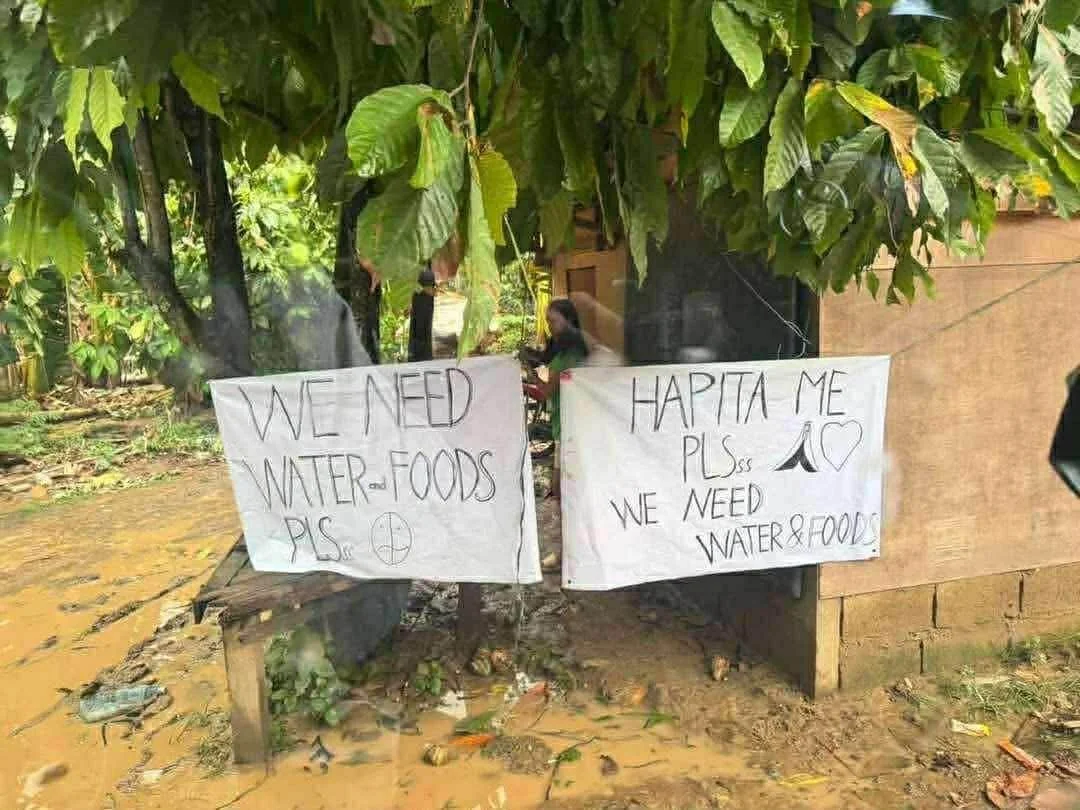 WE NEED
WATER and FOODS
PLSss
HAPITA ME
PLSss
WE NEED
WATER & FOODS